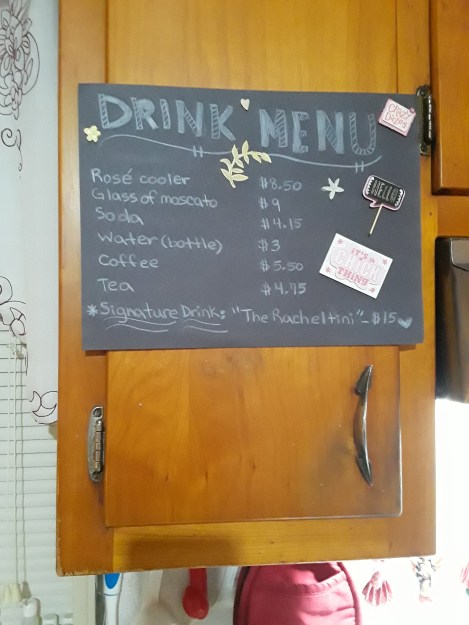 DRINK MENU
Crazy Daizey
Rosé cooler $8.50
Glass of moscato $9
Soda $4.15
Water (bottle) $3
Coffee $5.50
Tea $4.75
*Signature Drink: "The Racheltini" - $15
HELLO
IT'S a
THING